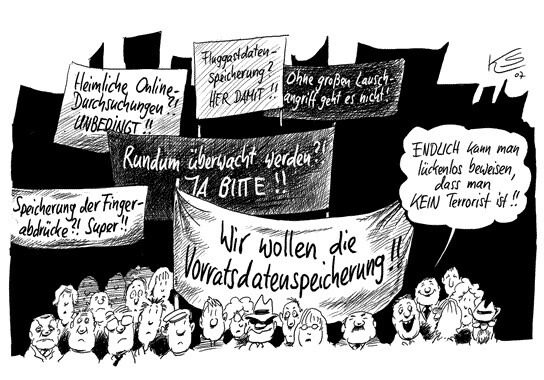 KS
07
Heimliche Online-
Durchsuchungen?!
UNBEDINGT!!
Fluggastdaten-
speicherung?
HER DAMIT!!
Ohne großen Lausch-
angriff geht es nicht!
Rundum überwacht werden?!
JA BITTE!!
Speicherung der Finger-
abdrücke?! Super!!
Wir wollen die
Vorratsdatenspeicherung!!
ENDLICH kann man
lückenlos beweisen,
dass man
KEIN Terrorist ist!!